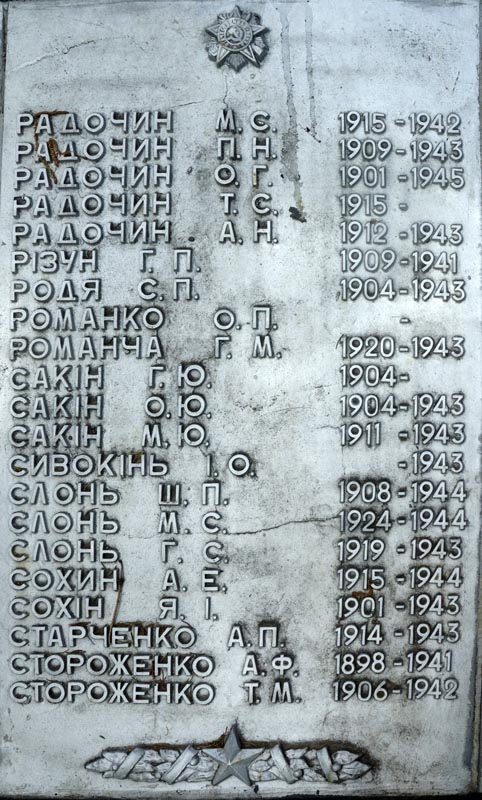 РАДОЧИН М.С. 1915-1942
РАДОЧИН П.Н. 1909-1943
РАДОЧИН О.Г. 1901-1945
РАДОЧИН Т.С. 1915-
РАДОЧИН А.Н. 1912-1943
РІЗУН Г.П. 1909-1941
РОДЯ С.П. 1904-1943
РОМАНКО О.П. -
РОМАНЧА Г.М. 1920-1943
САКІН Г.Ю. 1904-
САКІН О.Ю. 1904-1943
САКІН М.Ю. 1911-1943
СИВОКІНЬ І.О. -1943
СЛОНЬ Ш.П. 1908-1944
СЛОНЬ М.С. 1924-1944
СЛОНЬ Г.С. 1919-1943
СОХИН А.Е. 1915-1944
СОХІН Я.І. 1901-1943
СТАРЧЕНКО А.П. 1914-1943
СТОРОЖЕНКО А.Ф. 1898-1941
СТОРОЖЕНКО Т.М. 1906-1942